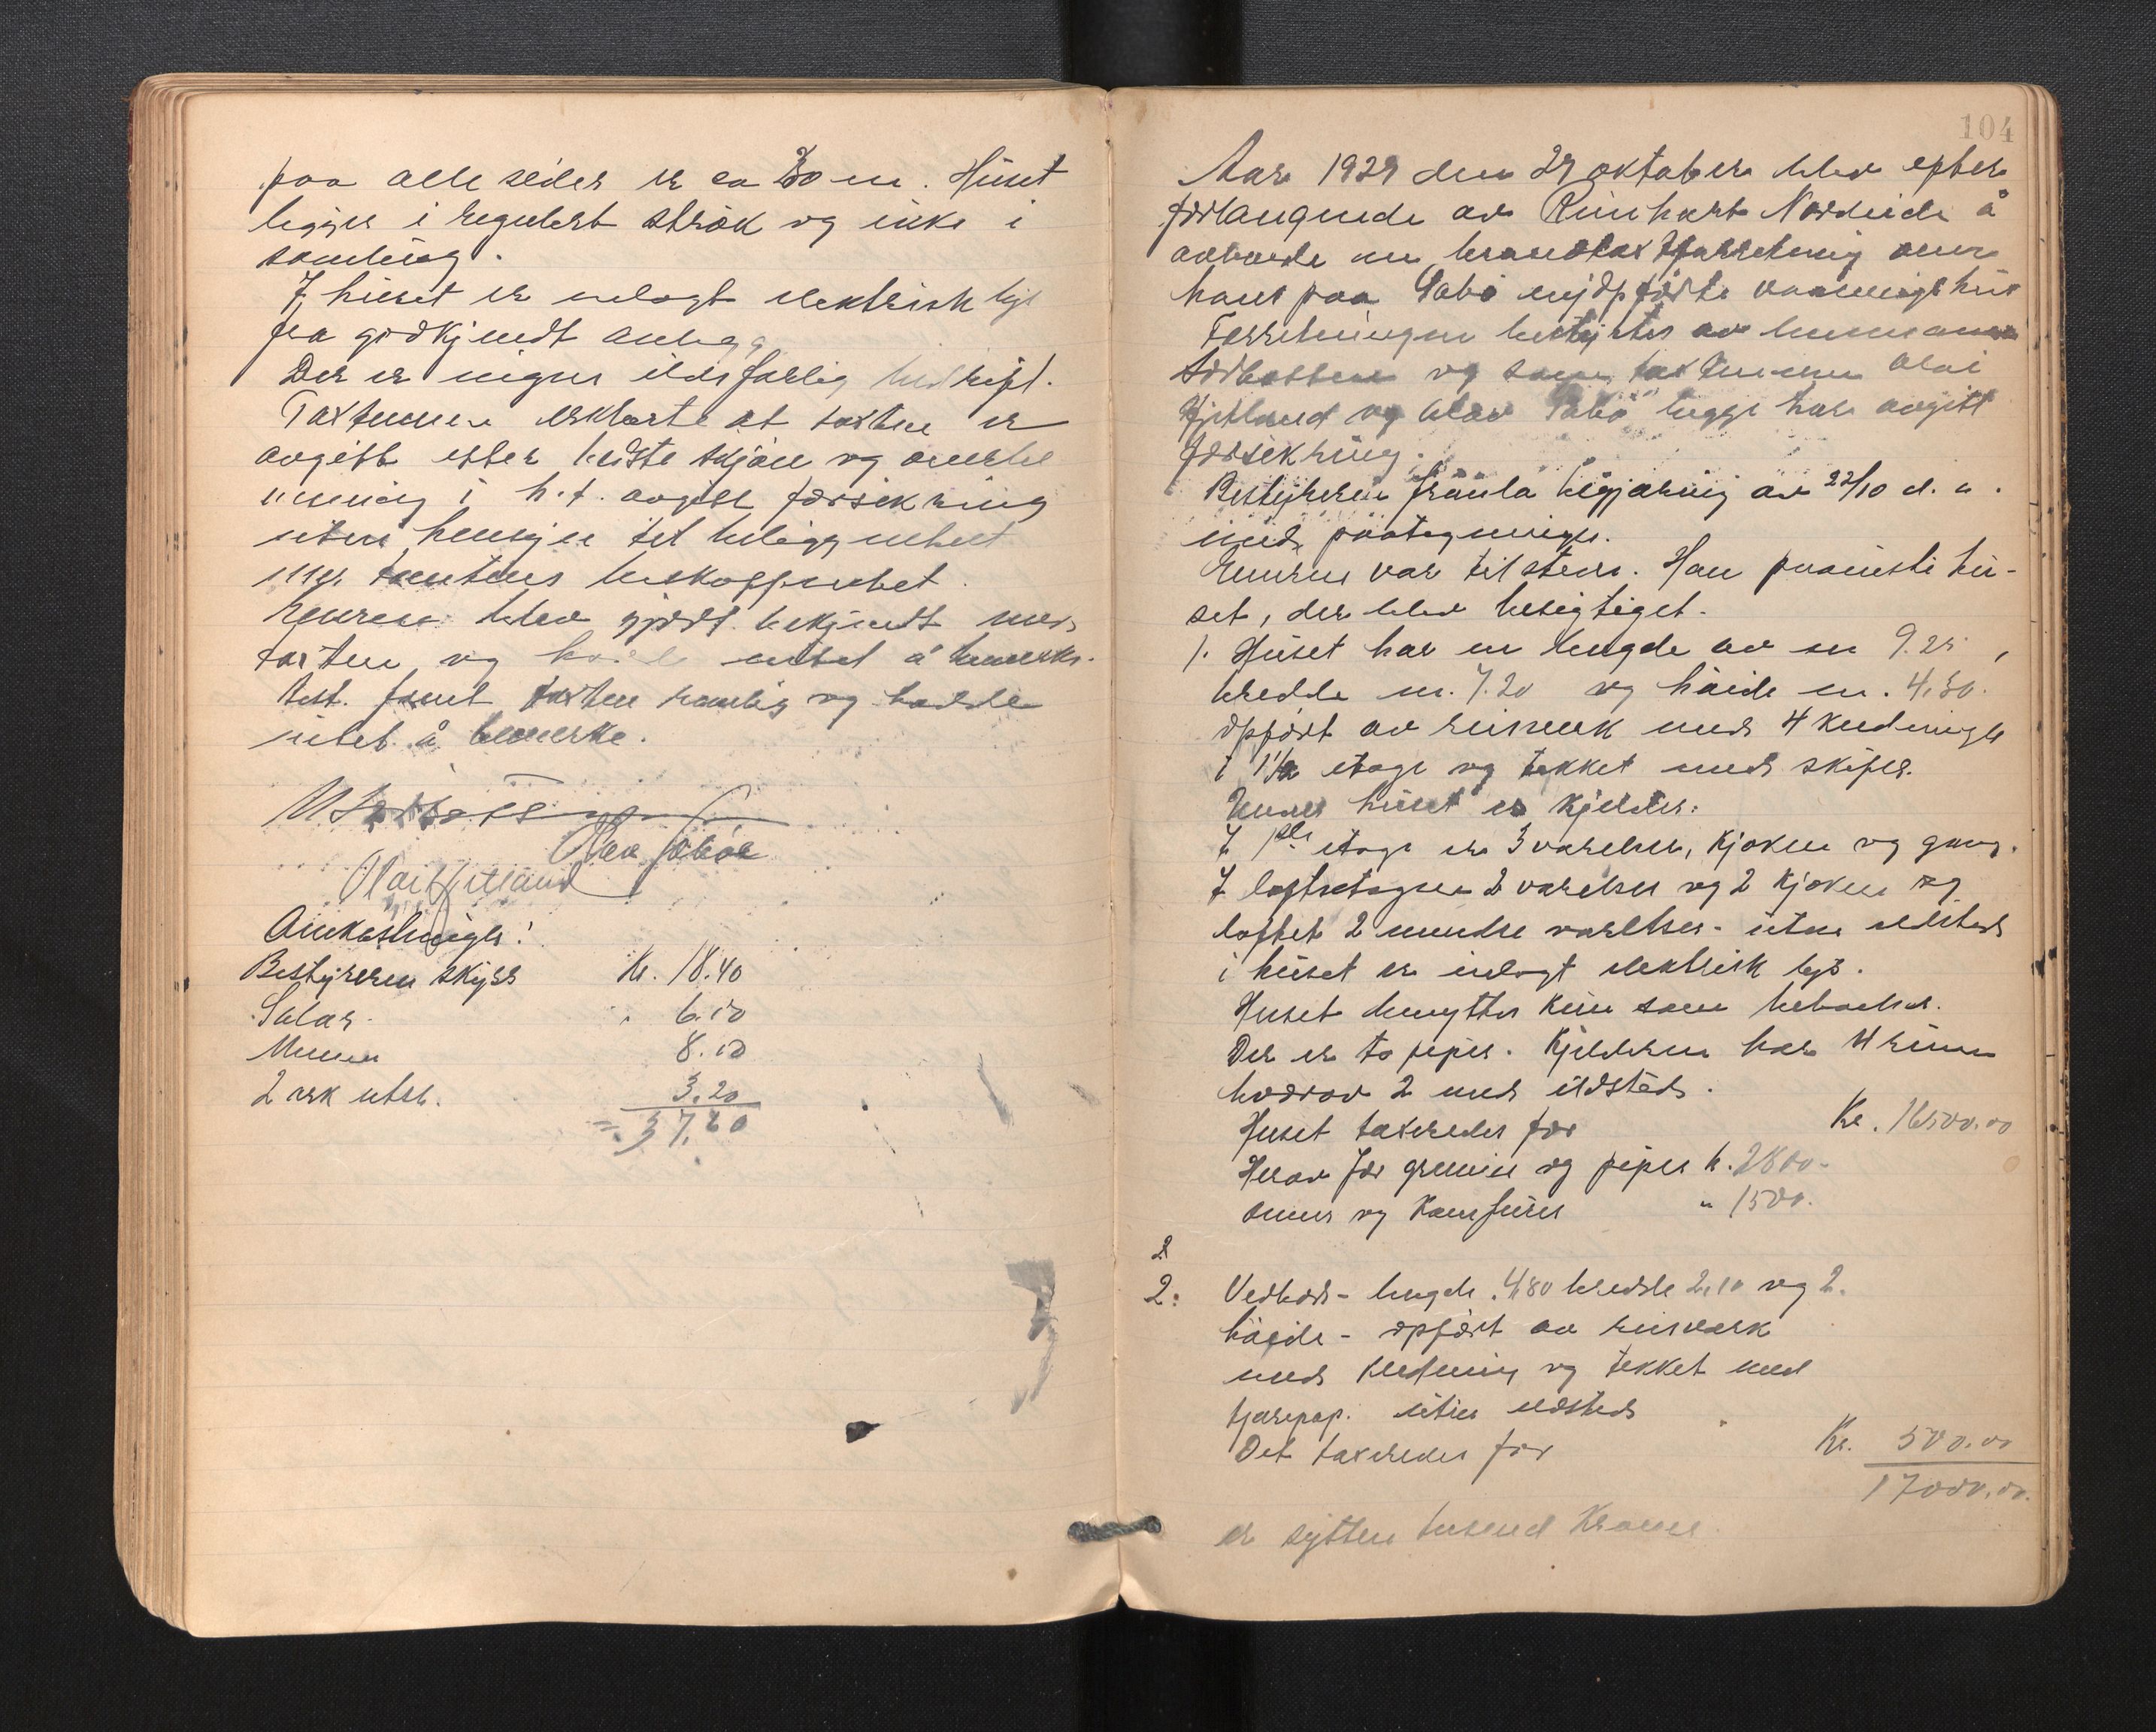 paa alle sider er ca 30 m. Huset
ligger i regulert strök og ikke i
samling.
I huset er indlagt elektrisk lys
fra godkjendt anlegg
Der er ingen ildsfarlig bedrift.
Taxtmennene erklærte at taxten er
avgitt efter bedste skjön og overbe
visning i h.t. avgitt forsikring
uten hensyn til beliggenhet
eller tomtens beskaffenhet.
Eieren blev gjort bekjendt med
taxten og havde intet å bemerke.
Best. fant taxten rimelig og hadde
intet å bemerke.
Olav Sæböe
Olai Hjetland
Omkostninger:
Bestyreren skyss Kr. 18.40
Salær 6.00
Menn 8.00
2 ark utsk. 3.20
= 37,60
104
Aar 1929 den 29 oktober blev efter
forlangende av Reinhart Nordeide å
avholde en brandtaxtforretning over
hans paa Sæbö nyopförte vaaningshus
Forretningen bestyrtes av lensmannen
Sörbotten og som taxtmenn Olai
Hjetland og Olav Sæbö begge har avgitt
forsikring.
Bestyreren fremla begjæring av 22/10 d. a.
med paategninger.
Eieren var tilstede. Han paaviste hu-
set, der blev besigtiget.
1. Huset har en lengde av m 9.25,
bredde m. 7.20 og höide m. 4,50.
opfört av reisverk med 4 kledninger
i 1 1/2 etage og tekket med skifer.
Under huset er kjelder.
I 1ste etage er 3 værelser, kjöken og gang.
I loftsetagen 2 værelser og 2 kjöken og
loftet 2 mindre værelser - uten ildsted
i huset er indlagt elektrisk lys.
Huset benyttes kun som beboelse.
Der er to piper. Kjelderen har 4 rum
hvorav 2 med ildsted.
Huset taxeredes for Kr. 16500.00
Herav for grunnmur og piper kr. 2800.-
ovner og komfurer " 1500.
2
2. Vedbod - lengde 4,80 bredde 2,10 og 2.
höide - opfört av reisverk
med kledning og tekket med
tjærepap. uten ildsted
Det taxeredes for Kr. 500.00
17000.00.
er sytten tusend Kroner